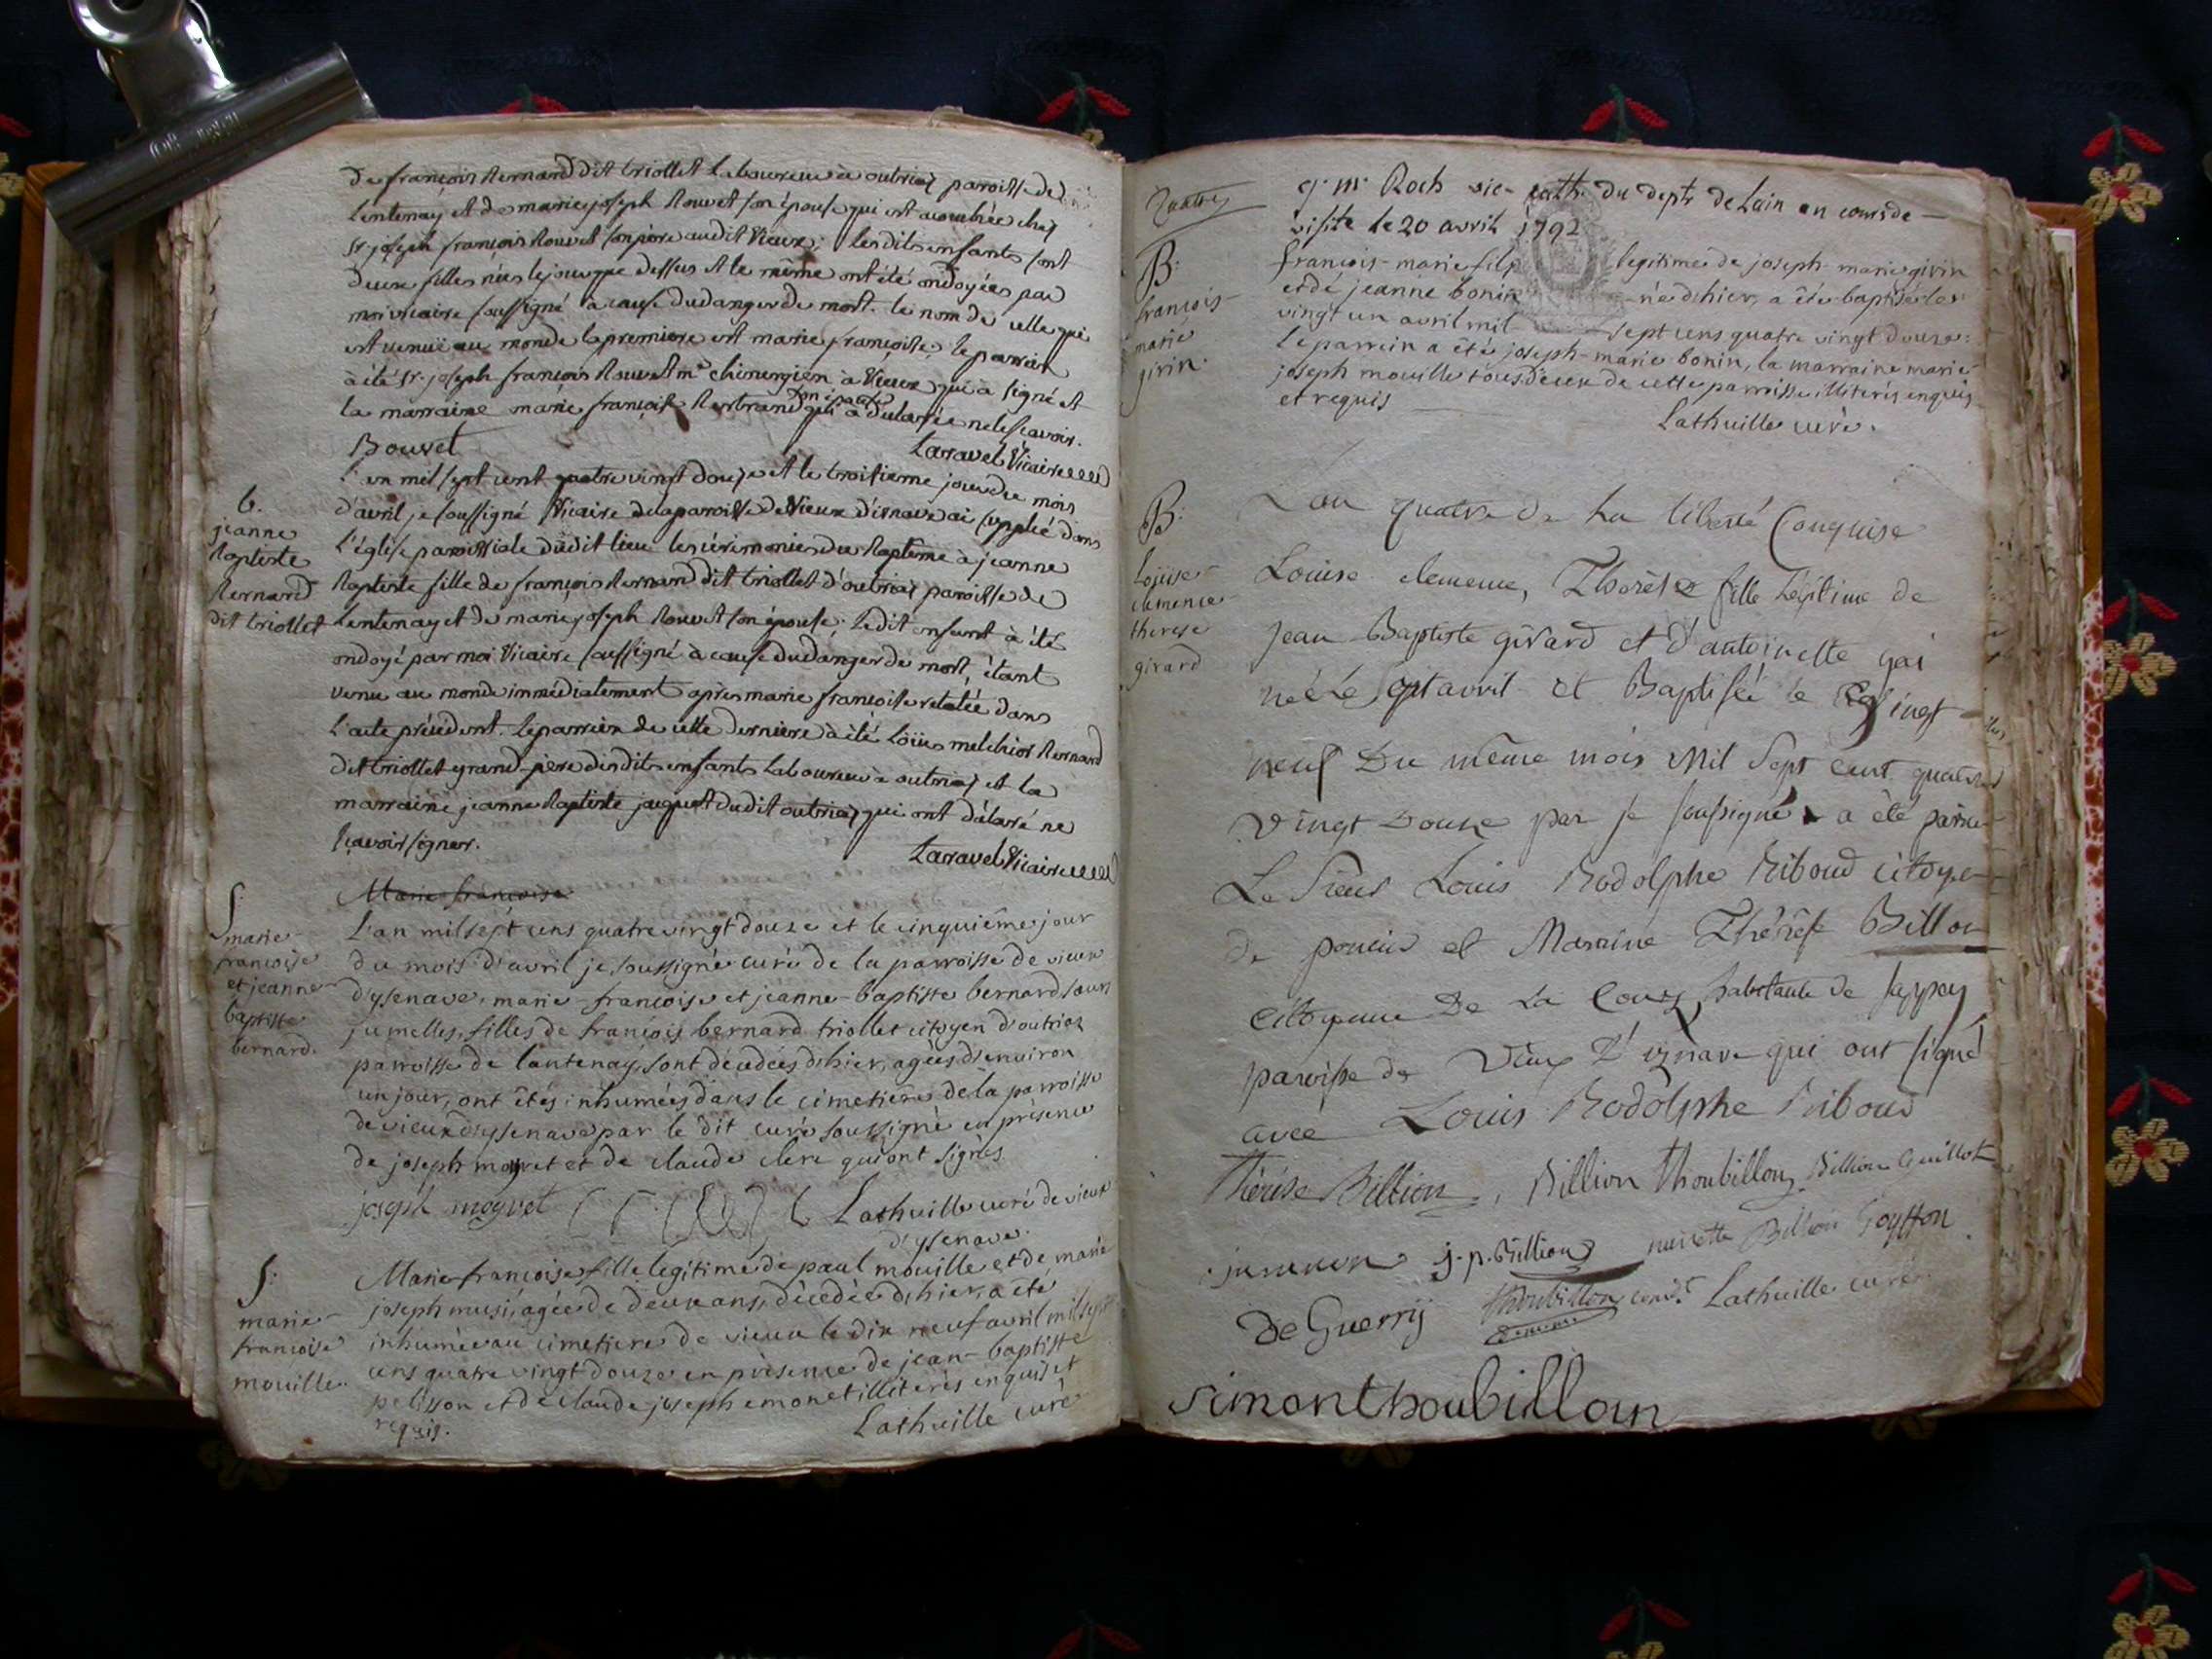 de françois Bernard dit triollet Laboureur à outriaz paroisse de
Lentenay et de marie joseph Bouvet son épouse qui est acouchée chez
sr. joseph françois Bouvet son père audit Vieux; lesdits enfants sont
deux filles nées le jour que dessus et le même ont été ondoyées par
moi vicaire soussigné à cause du danger de mort. le nom de celle qui
est venuë au monde la premiere est marie françoise, le parrain
à été sr. joseph françois Bouvet me chirurgien à Vieux qui à signé et
la marraine marie françoise Bertrand son épouse qui à declarée ne le sçavoir.
Bouvet Laravel Vicaire
L'an mil sept cent quatre vingt douze et le troisieme jour du mois
d'avril je soussigné Vicaire de la paroisse de Vieux d'isnave ai supplié dans
L'église paroissiale dudit lieu les cérémonies du Baptême à jeanne
Baptiste fille de françois Bernard dit triollet d'outriaz paroisse de
Lentenay et de marie joseph Bouvet son épouse. Ledit enfant à été
ondoyé par moi Vicaire soussigné à cause du danger de mort, étant
venu au monde immédiatement après marie françoise relatée dans
L'acte précédent. Le parrain de cette derniere à été Loüis melchior Bernard
dit triollet grand-père desdits enfants Laboureur à outriaz et la
marraine jeanne Baptiste jaquet dudit outriaz qui ont déclaré ne
sçavoir signer.
Laravel Vicaire
b.
jeanne
Baptiste
Bernard
dit triollet
Marie françoise
L'an mil sept cens quatre vingt douze et le cinquième jour
du mois d'avril je soussigné curé de la parroisse de vieux
d'ysenave, marie-françoise et jeanne-baptiste bernard sœurs
jumelles, filles de françois bernard triollet citoyen d'outriaz
parroisse de lantenay, sont décédées d'hier, agées d'environ
un jour, ont êtés inhumées dans le cimetière de la parroisse
de vieux d'ysenave par le dit curé soussigné en présence
de joseph moyret et de claude clerc qui ont signés.
joseph moyret Lathuille curé de vieux
d'ysenave.
S.
marie-
françoise
et jeanne-
baptiste
bernard.
Marie-françoise fille legitime de paul mouille et de marie
joseph musi, agée de deux ans, décédée d'hier, a été
inhumée au cimetiere de vieux le dix neuf avril mil sept
cens quatre vingt douze en présence de jean-baptiste
pelisson et de claude joseph emonet illiterés enquis et
requis.
Lathuille curé
S:
marie-
françoise
mouille.
g. m. Roch vic- cath. du dept. de Lain en cours de-
visite le 20 avril 1792
B:
françois-
marie
girin.
françois-marie fils legitime de joseph-marie girin
et de jeanne bonin né d'hier, a été baptisé le
vingt un avril mil sept cens quatre vingt douze:
Le parrein a été joseph-marie bonin, la marraine marie-
joseph mouille tous deux de cette parroisse illiterés enquis
et requis
Lathuille curé.
B:
Loüise-
clemence-
therese
girard
Lan quatre de La liberté Conquise
Louise clemence, Thorèse fille Légitime de
Jean Baptiste girard et d'antoinette gai
née le sept avril et Baptisée le vingt
neuf Du même mois Mil Sept Cent quatre
vingt Douze par je soussigné a êté parin
Le Sieur Louis Rodolphe Riboud Citoyen
de poncin et Marrine Thérèse Billon
Citoyenne De La Couz habitante de Sappey
paroisse de Vieux D'iznave qui ont signé
avec Louis Rodolphe Riboud
Thérèse Billion, Billion Thoubillon, Billion Guillot
j.-p. Billion Billion Goyffon
De Guerry Thoubillon Lathuille curé
Simon thoubillon